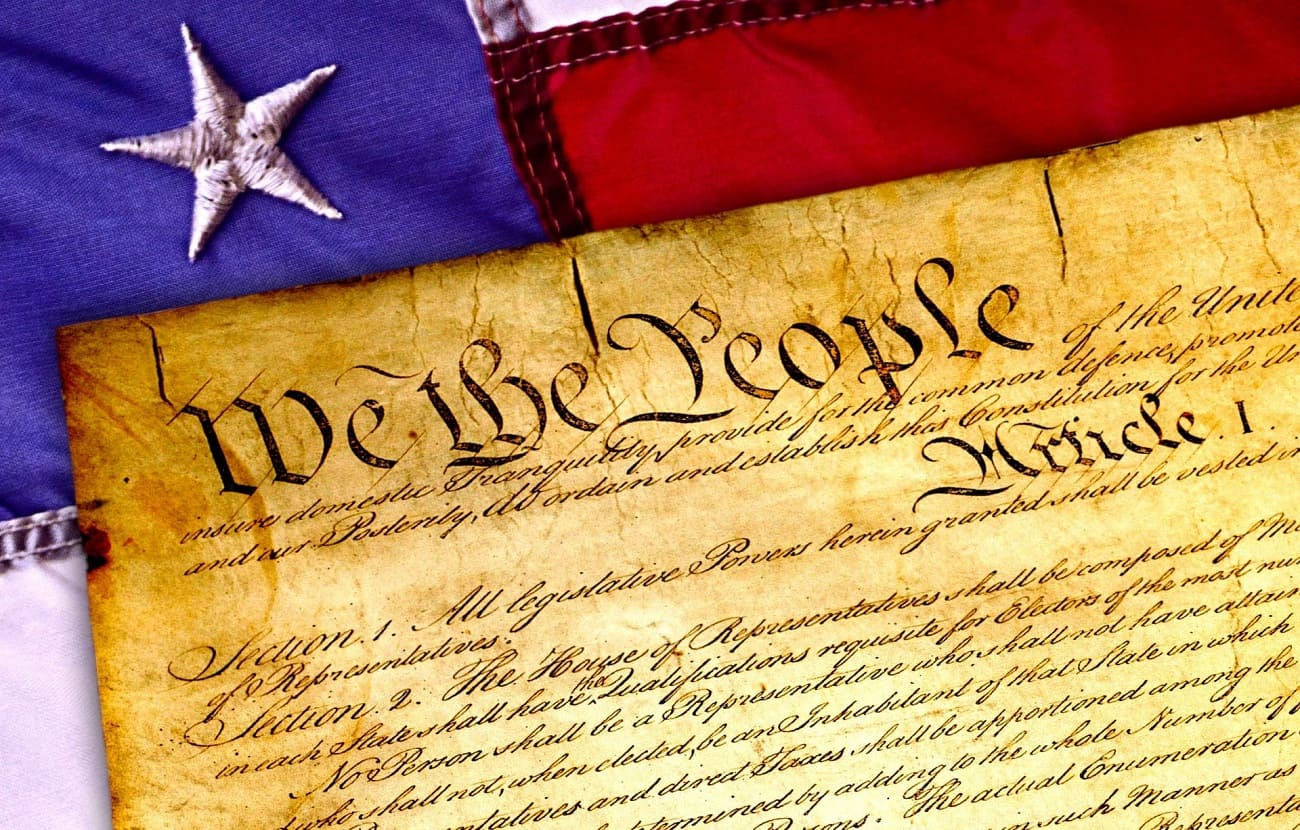 We the People of the Unite
insure domestic Tranquility, provide for the common defence, promote
and our Posterity, do ordain and establish this Constitution for the Un
Article. I.
Section. 1. All legislative Powers herein granted shall be vested in
of Representatives.
Section. 2. The House of Representatives shall be composed of Me
in each State shall have the Qualifications requisite for Electors of the most nu
No Person shall be a Representative who shall not have attain
who shall not, when elected, be an Inhabitant of that State in which
ntatives and direct Taxes shall be apportioned among the
termined by adding to the whole Number of
rsons. The actual Enumeration
in such Manner as
Representat